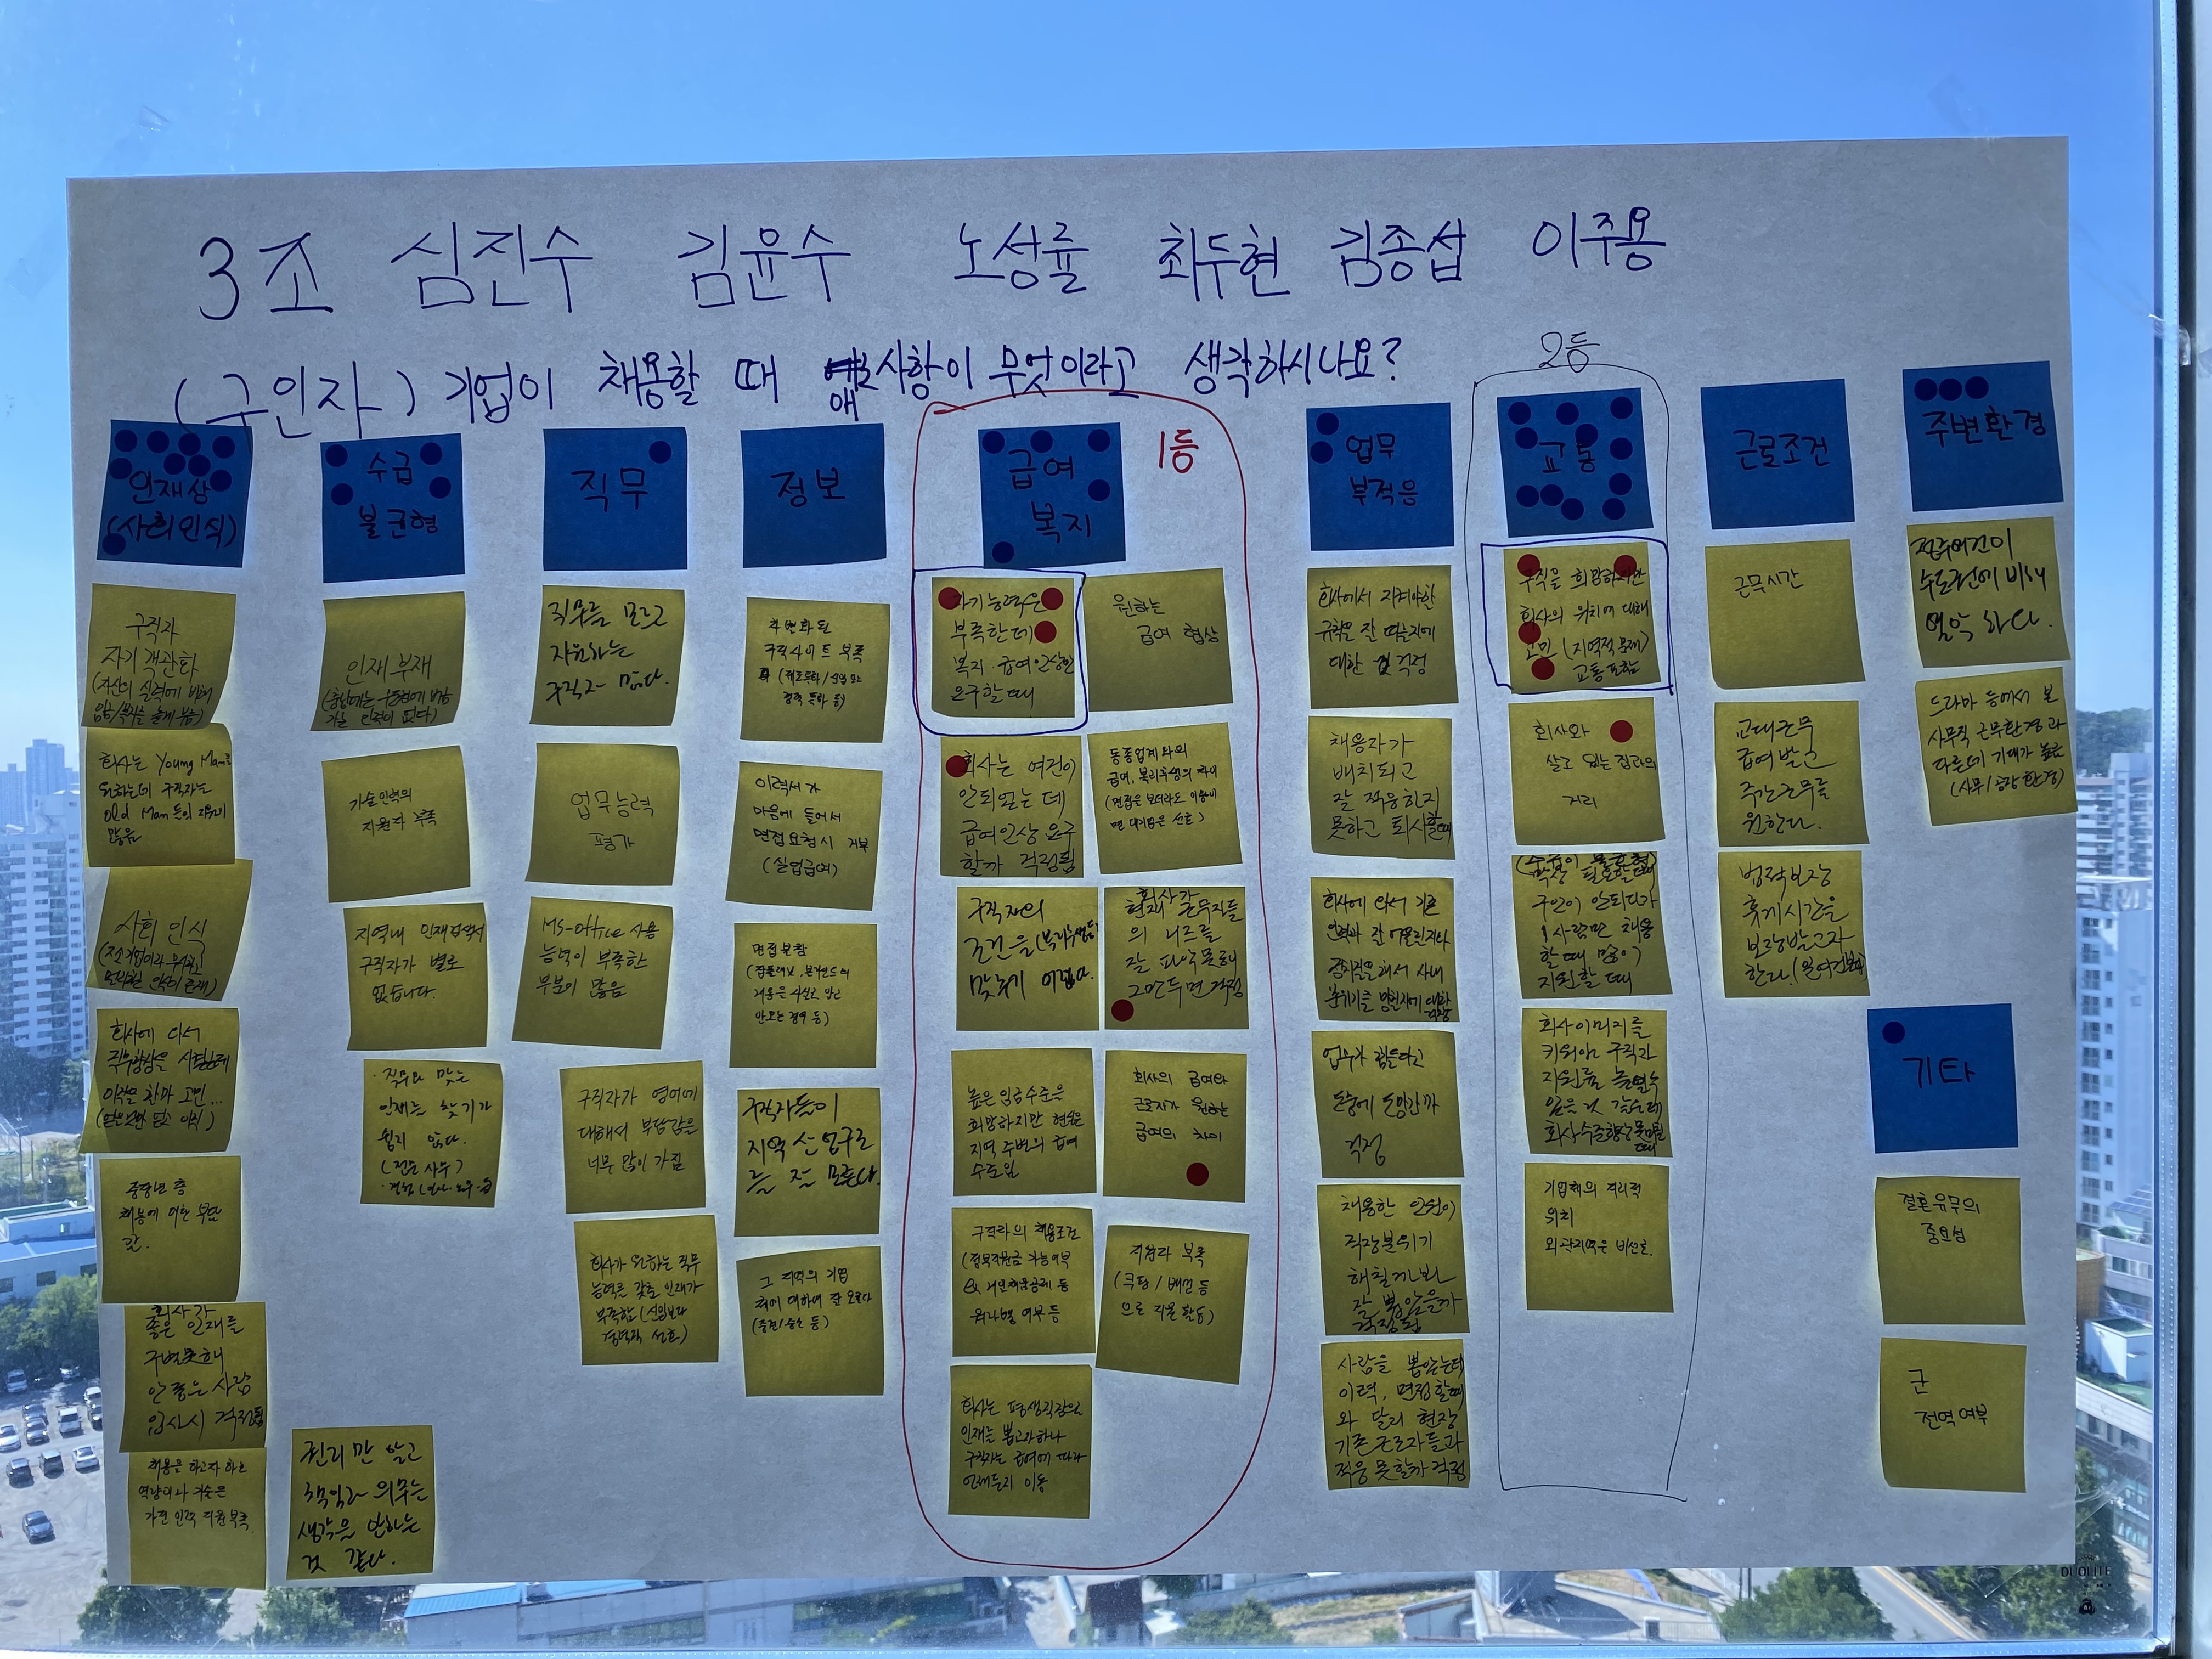 3조 심진수 김윤수 노성률 최두현 김종섭 이주용
(구인자) 기업이 채용할 때 애로사항이 무엇이라고 생각하시나요?
인재상
(사회인식)
구직자
자기 객관화
(자신의 실력에 비해
회사는 Young Man을
원하는데 구직자는
Old Man 등의 지원이
많음
사회 인식
회사에 와서
직무향상을 시켰는데
이직을 한다 고민...
중장년 층
채용에 대한 부담
감.
회사가
좋은 인재를
구별못해
안좋은 사람
입사시 걱정됨
채용을 하고자 하는
역량이나 기술을
가진 인력 지원 부족.
권리만 알고
책임과 의무는
생각을 안하는
것 같다.
수급
불균형
인재 부재
기술인력의
지원자 부족
지역내 인재검색시
구직자가 별로
없습니다.
· 직무와 맞는
인재는 찾기가
쉽지 않다.
(전문 사무)
직무
직무를 모르고
지원하는
구직자 많다.
업무능력
평가
MS-office 사용
능력이 부족한
부분이 많음
구직자가 영어에
대해서 부담감을
너무 많이 가짐
회사가 원하는 직무
능력을 갖춘 인재가
부족함 (신입보다
경력직 선호)
정보
구직사이트 부족
이력서가
마음에 들어서
면접요청시 거부
(실업급여)
면접불참
안오는 경우 등)
구직자들이
지역 산업구조
를 잘 모른다.
그 지역의 기업
체에 대하여 잘 모른다
급여
복지
1등
자기능력은
부족한데
복지·급여인상만
요구할 때
원하는
급여 협상
회사는 여건이
안되었는데
급여인상 요구
할까 걱정됨
동종업계와의
급여, 복리후생의 차이
(면접은 보더라도 이왕이
면 대기업은 선호)
구직자의
조건을 (복리후생등)
맞추기 어렵다.
회사가
현재 근무직들
의 니즈를
잘 파악못해
그만두면 걱정
높은 임금수준은
희망하지만 현실은
지역 주변의 급여
수준임
회사의 급여와
근로자가 원하는
급여의 차이
구직자의 채용조건
(정부지원금 가능여부
& 내일채움공제 등
지원자 부족
(쿠팡 / 배민 등
으로 지원 활동)
회사는 평생직장의
인재를 뽑고자하나
구직자는 급여에 따라
언제든지 이동
업무
부적응
회사에서 지켜야할
규칙을 잘 따를지에
대한 걱정
채용자가
배치되고
잘 적응하지
못하고 퇴사할때
회사에 와서 기존
인력과 잘 어울린지나
업무가 힘들다고
도중에 도망갈까
걱정
채용한 인원이
직장분위기
해칠거봐
잘 뽑았을까
걱정됨
사람을 뽑았는데
이력, 면접할때
와 달리 현장
기존 근로자들과
적응 못할까 걱정
2등
교통
구직을 희망하지만
회사의 위치에 대해
고민 (지역적 문제)
교통포함
회사와
살고 있는 집과의
거리
구인이 안되다가
1사람만 채용
할때 많이
지원할 때
회사이미지를
키워야 구직자
지원률 높일수
있을 것 같은데
회사수준향상 못미칠
때
기업체의 지리적
위치
외곽지역은 비선호.
근로조건
근무시간
교대근무
급여받고
주간근무를
원한다.
법적보장
휴게시간을
보장받고자
한다.
주변환경
정주여건이
수도권에 비해
열악하다.
드라마 등에서 본
사무직 근무환경과
다른데 기대가 높음
(사무/공장 환경)
기타
결혼유무의
중요성
군
전역여부